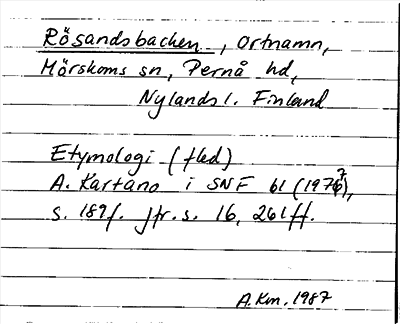 Rösandsbacken, Ortnamn,
Mörskoms sn, Pernå hd,
Nylands l. Finland
Etymologi (fled)
A. Kartano i SNF 61 (1977),
s. 189f. Jfr. s. 16, 261ff.
A.Km. 1987